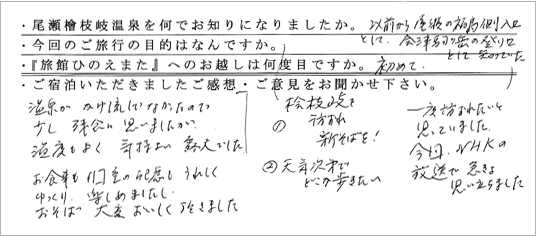 ・尾瀬檜枝岐温泉を何でお知りになりましたか。以前から尾瀬の福島側入口
として、会津駒ヶ岳の登り口
として知っていた
・今回のご旅行の目的はなんですか。
・『旅館ひのえまた』へのお越しは何度目ですか。初めて
・ご宿泊いただきましたご感想・ご意見をお聞かせ下さい。
温泉がかけ流しでなかったので
少し残念に思いましたが
温度もよく気持よい
お食事も
ゆっくり楽しめましたし
おそば大変おいしく頂きました
①檜枝岐を
訪れ
新そばを！
②天気次第で
どこか歩きたい
一度訪れたいと
思っていました
今回、NHKの
放送で急きょ
思い立ちました